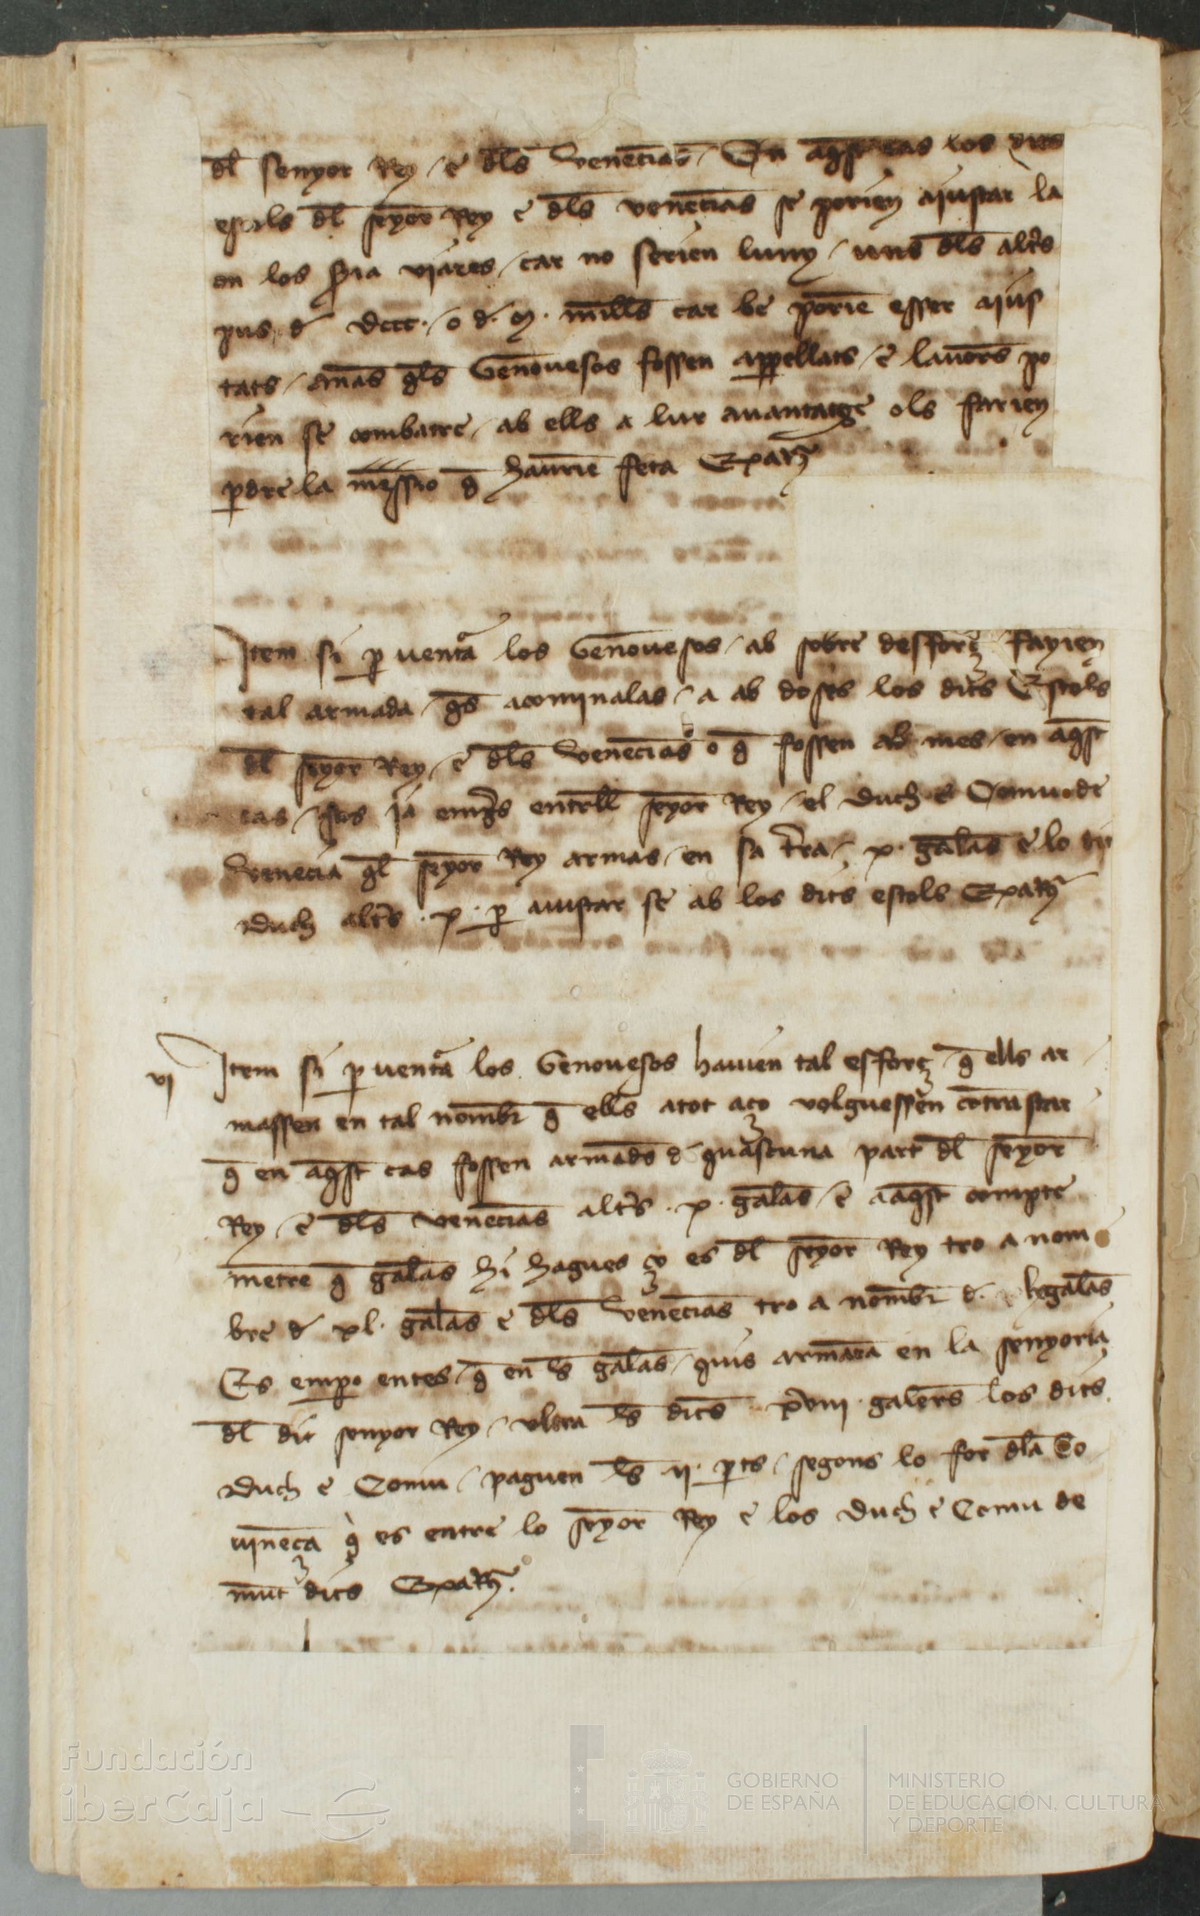 dl senyor Rey / e dls Venecias / En aqst cas los dits
estols dl senyor Rey e dls venecias se porien aiustar la
on los sia viares / car no serien luny / uns dls altrs
pus d dccc · o d · m · mills car be porie esser aius
tats / anas qls Genovesos fossen appellats / e lavors po
rien se combatre / ab ells a lur avantatge ols farien
pdre la messio q haurie feta
Item si p ventura los Genovesos / ab sobre desforç / fayien
tal armada / qs acominalas / a ab doses los dits Estols
dl senyor Rey / e dls Venecias o q fossen ab mes / en aqst
cas / sos ja empres entrell senyor Rey / el Duch e Comu de
Venecia ql senyor Rey armas / en sa terra / x · galeas e lo dit
Duch altrs · x · p aiustar se ab los dits estols
vi Item si p ventura los Genovesos havien tal esforç / q ells ar
massen en tal nombr q ells atot aço volguessen contrastar
q en aqst cas fossen armades d quascuna part dl senyor
Rey / e dls venecias altrs · x · galeas / e aaqst compte
metre q galeas hi hagues ço es dl senyor Rey tro a nom
bre d xl · galeas e dls Venecias tro a nombr d · galeas
Es empo entes / q en ls galeas / quis armara en la senyoria
dl dit senyor Rey / ultra ls dites xviii · galees los dits
Duch e Comu / paguen ls ii · pts / segons lo for dla Co
vinença q es entre lo senyor Rey e los Duch e Comu de
munt dits
Fundación
iberCaja
GOBIERNO
DE ESPAÑA
MINISTERIO
DE EDUCACIÓN, CULTURA
Y DEPORTE